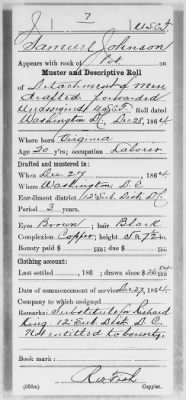 J 7 U.S.C.T.
Samuel Johnson
Appears with rank of Pvt. on
Muster and Descriptive Roll
of Detachment of Men
drafted & forwarded
Unassigned U.S.C.T. Roll dated
Washington D.C. Dec 28, 1864
Where born Virginia
Age 20 y'rs; occupation Laborer
Drafted and mustered in:
When Dec 27, 1864
Where Washington D.C.
Enrollment district 12" Sub. Dist. D.C.
Period 3 years.
Eyes Brown; hair Black
Complexion Copper; height 5 ft. 7 1/2 in.
Bounty paid $ 100; due $ 100
Clothing account:
Last settled , 186 ; drawn since $ 36 54/100
Date of commencement of service Dec 27, 1864
Company to which assigned
Remarks: Substitute for Richard
King 12" Sub. Dist. D.C.
Not entitled to bounty.
Book mark:
(356a) Copyist.